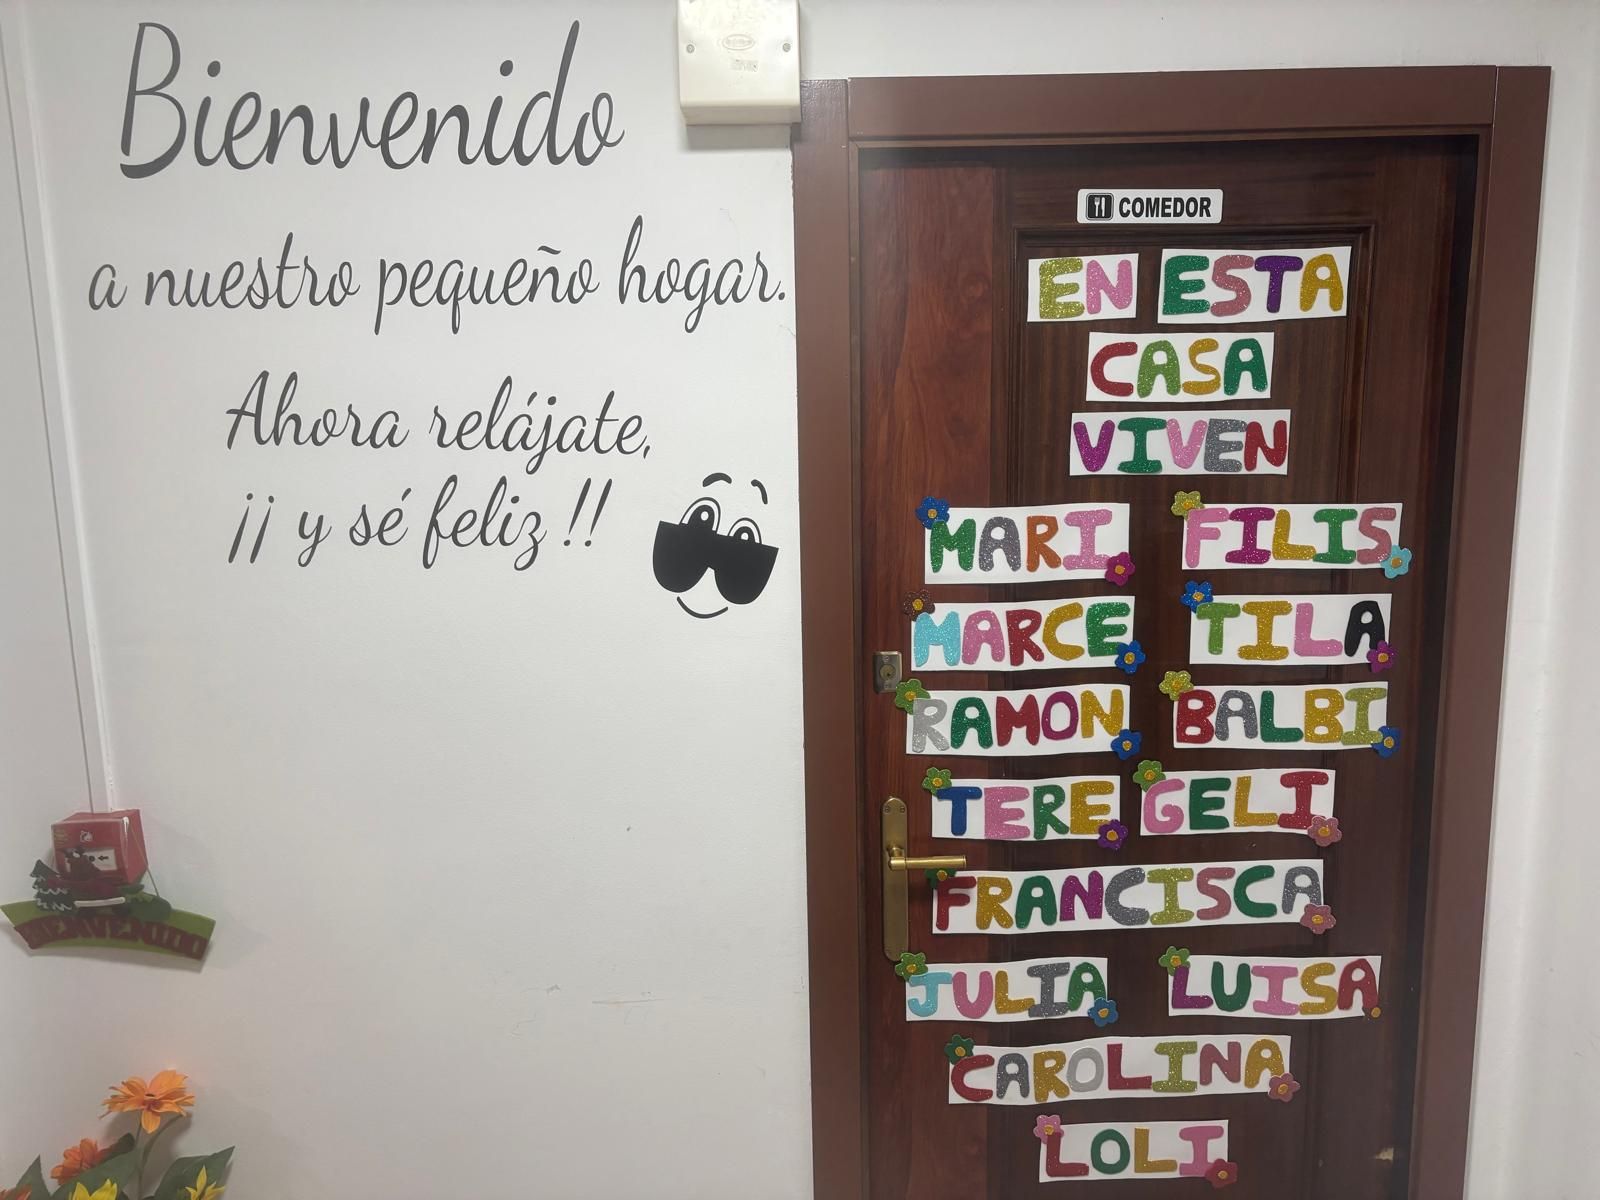 Bienvenido
a nuestro pequeño hogar.
Ahora relájate,
¡¡ y sé feliz !!
BIENVENIDO
COMEDOR
EN ESTA
CASA
VIVEN
MARI FILIS
MARCE TILA
RAMON BALBI
TERE GELI
FRANCISCA
JULIA LUISA
CAROLINA
LOLI